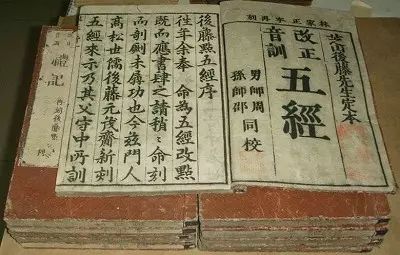 林家正本再刻
芝山後藤先生定本
改正
音訓
五經
男師周
孫師邵
同校
後藤點五經序
往年余奉 命為五經改點
既而應書肆之請稍〻命刻
而剞劂未竣功也今茲門人
髙松世儒後藤元茂齋新刻
五經來示乃其父守中所訓
禮記